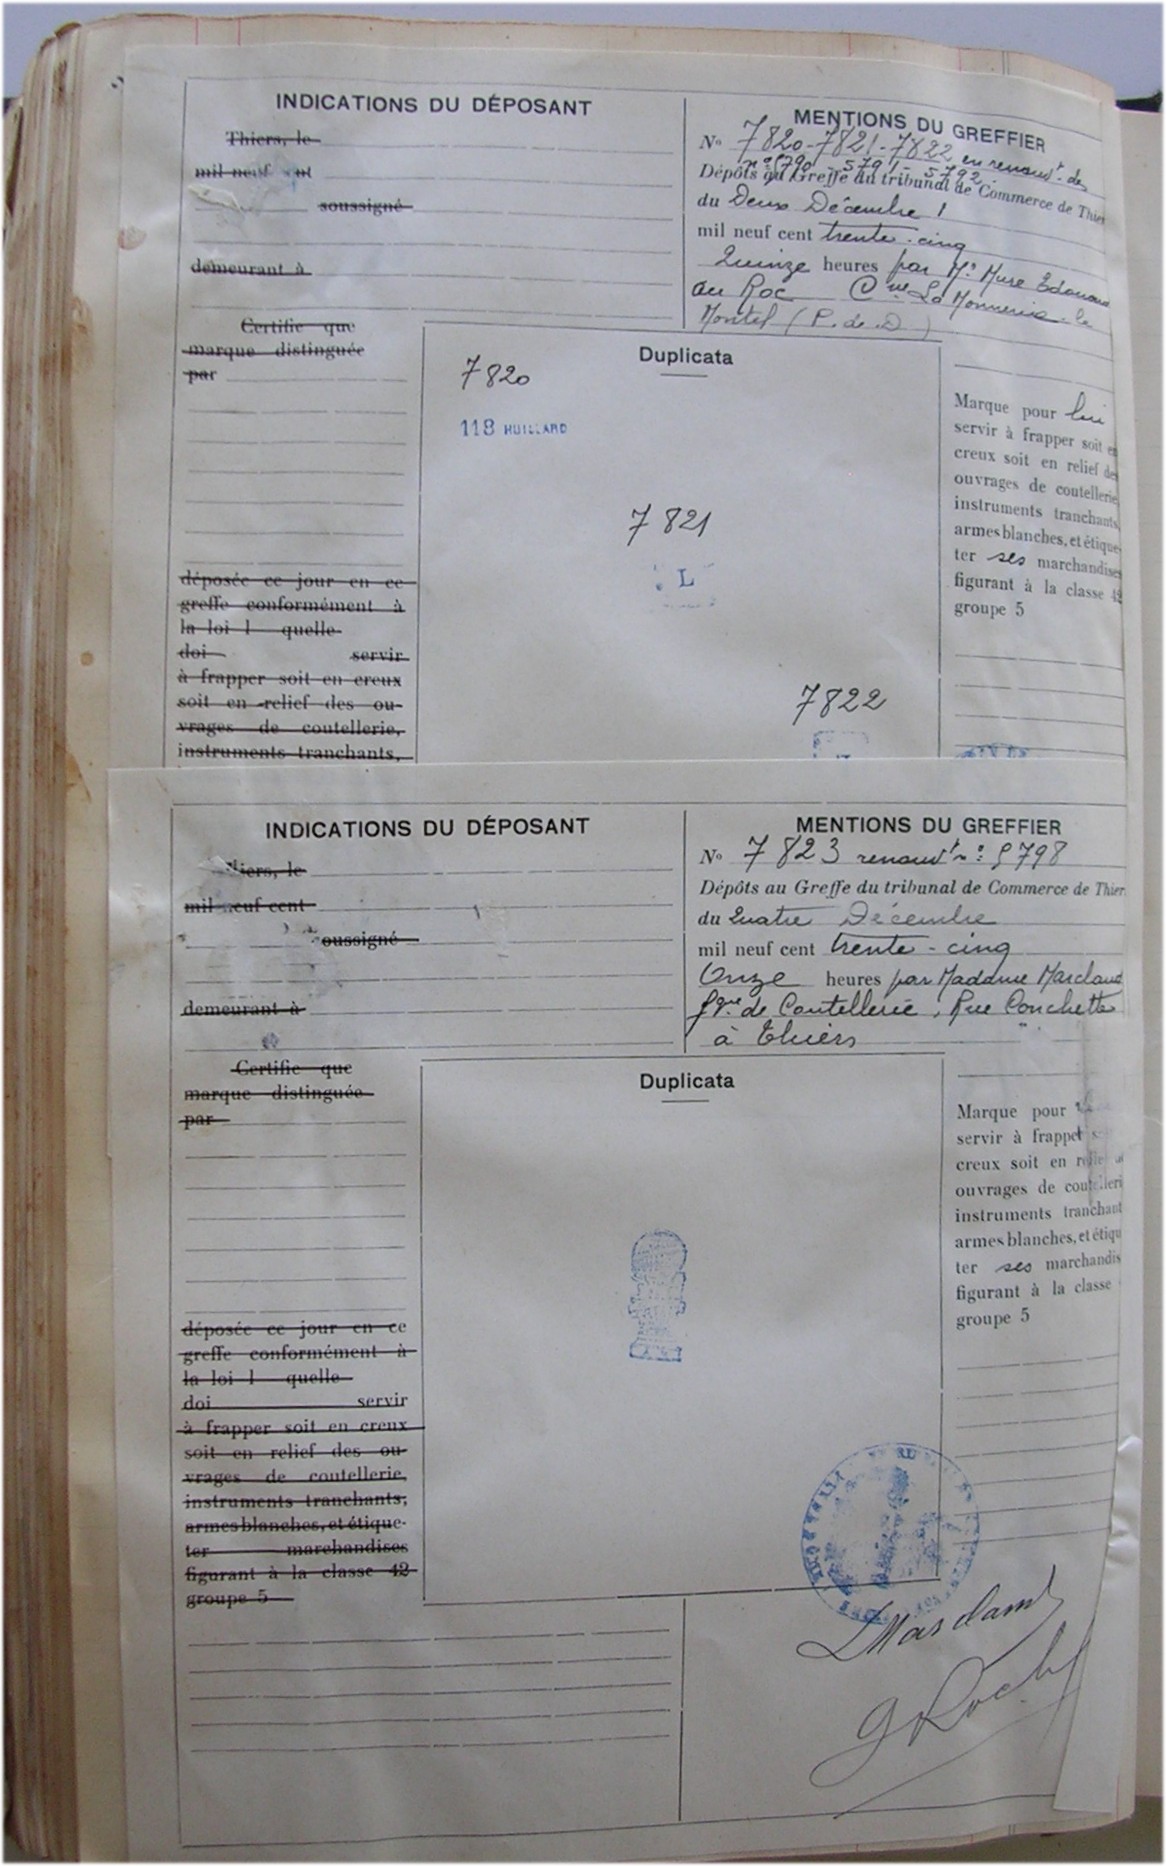 INDICATIONS DU DÉPOSANT
Thiers, le
mil neuf nt
soussigné
demeurant à
MENTIONS DU GREFFIER
No 7820-7821-7822 en renouvt des
nos 5790 - 5791 - 5792
Dépôts au Greffe du tribunal de Commerce de Thier
du Deux Décembre
mil neuf cent trente-cinq
Quinze heures par Mr Mure Edouard
au Roc Cne La Monnerie-le
Montel (P. de. D)
Certifie que
marque distinguée
par
déposée ce jour en ce
greffe conformément à
la loi l quelle
doi servir
à frapper soit en creux
soit en relief des ou-
vrages de coutellerie,
instruments tranchants,
Duplicata
7820
118 HUILLARD
7821
L
7822
Marque pour lui
servir à frapper soit en
creux soit en relief des
ouvrages de coutellerie,
instruments tranchants,
armes blanches, et étique-
ter ses marchandises
figurant à la classe 42
groupe 5
INDICATIONS DU DÉPOSANT
iers, le
mil neuf cent
oussigné
demeurant à
MENTIONS DU GREFFIER
No 7823 renouvt no: 5798
Dépôts au Greffe du tribunal de Commerce de Thier
du Quatre Décembre
mil neuf cent trente-cinq
Onze heures par Madame Marclaud
fque de Coutellerie, Rue Conchette
à Thiers
Certifie que
marque distinguée
par
déposée ce jour en ce
greffe conformément à
la loi l quelle
doi servir
à frapper soit en creux
soit en relief des ou-
vrages de coutellerie,
instruments tranchants,
armes blanches, et étique-
ter marchandises
figurant à la classe 42
groupe 5
Duplicata
Marque pour
servir à frapper s
creux soit en relie
ouvrages de coutelleri
instruments tranchant
armes blanches, et étiqu
ter ses marchandis
figurant à la classe
groupe 5